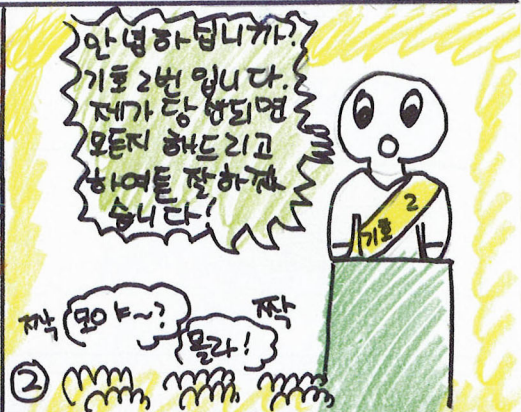 안녕하십니까?
기호 2번 입니다.
제가 당 반되면
모든지 해드리고
하여튼 잘하겠
습니다!
기호 2
짝
모야~?
짝
몰라!
②